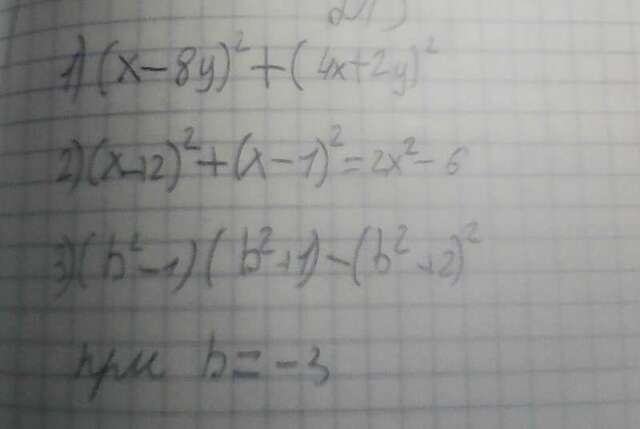 1) (x-8y)² + (4x+2y)²
2) (x+2)² + (x-1)² = 2x² - 6
3) (b²-1)(b²+1) - (b²+2)²
при b = -3